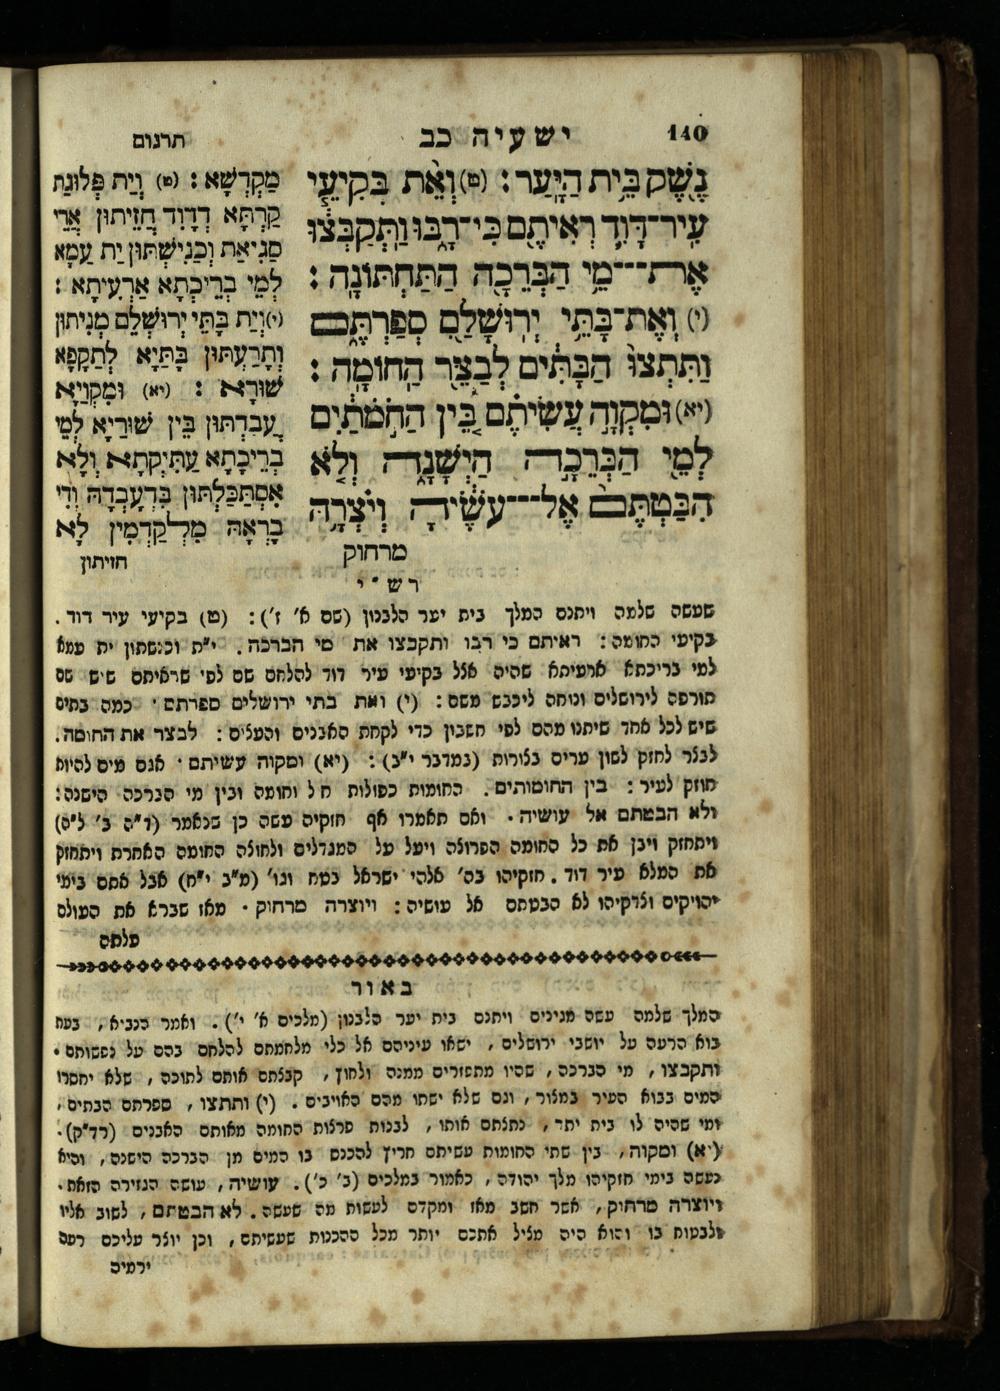 140
ישעיה כב
תרגום
נֶ֖שֶׁק בֵּ֥ית הַיָּֽעַר׃ (ט) וְאֵ֨ת בְּקִיעֵ֧י
עִיר־דָּוִ֛ד רְאִיתֶ֖ם כִּי־רָ֑בּוּ וַֽתְּקַבְּצ֔וּ
אֶת־מֵ֥י הַבְּרֵכָ֖ה הַתַּחְתּוֹנָֽה׃
(י) וְאֶת־בָּתֵּ֥י יְרֽוּשָׁלַ֖םִ סְפַרְתֶּ֑ם
וַתִּתְצוּ֙ הַבָּ֣תִּ֔ים לְבַצֵּ֖ר הַחוֹמָֽה׃
(יא) וּמִקְוָ֣ה עֲשִׂיתֶ֗ם בֵּ֚ין הַחֹ֣מֹתַ֔יִם
לְמֵ֖י הַבְּרֵכָ֣ה הַיְשָׁנָ֑ה וְלֹ֤א
הִבַּטְתֶּם֙ אֶל־עֹשֶׂ֔יהָ וְיֹצְרָ֥הּ
מרחוק
מַקְדְשָׁא׃ (ט) וְיַת פְּלוּגַת
קַרְתָּא דְדָוִד חֲזֵיתוּן אֲרֵי
סְגִיאַת וּכְנִישְׁתּוּן יַת עַמָא
לְמֵי בְרֵיכְתָא אַרְעִיתָא׃
(י) וְיַת בָּתֵּי יְרוּשְׁלֵם מְנִיתוּן
וְתָרַעְתּוּן בָּתַּיָא לְתַקָפָא
שׁוּרָא׃ (יא) וּמִקְוַיָא
עֲבַדְתּוּן בֵּין שׁוּרַיָא לְמֵי
בְרֵיכָתָא עַתִּיקְתָא וְלָא
אִסְתַּכַּלְתּוּן בִּדְעָבְדָהּ וְדִי
בְרָאָהּ מִלְקַדְמִין לָא
חזיתון
רש״י
שעשה שלמה ויתנם המלך בית יער הלבנון (שם א׳ ז׳)׃ (ט) בקיעי עיר דוד.
בקיעי החומה׃ ראיתם כי רבו ותקבצו את מי הברכה. י״ת וכנשתון ית עמא
למי בריכתא ארעיתא שהיה אצל בקיעי עיר דוד להלחם שם לפי שראיתם שיש שם
תורפה לירושלים ונוחה ליכבש משם׃ (י) ואת בתי ירושלים ספרתם. כמה בתים
שיש לכל אחד שיתנו מהם לפי חשבון כדי לקחת האבנים והעצים׃ לבצר את החומה.
לבצר לחזק לשון ערים בצורות (במדבר י״ג)׃ (יא) ומקוה עשיתם. אגם מים להיות
חוזק לעיר׃ בין החומותים. החומות כפולות חל וחומה ובין מי הברכה הישנה׃
ולא הבטתם אל עושיה. ואם תאמרו אף חזקיה עשה כן שנאמר (ד״ה ב׳ ל״ב)
ויתחזק ויבן את כל החומה הפרוצה ויעל על המגדלים ולחוצה החומה האחרת ויתחזק
את המלא עיר דוד. חזקיהו בה׳ אלהי ישראל בטח וגו׳ (מ״ב י״ח) אבל אתם בימי
יהויקים וצדקיהו לא הבטתם אל עושיה׃ ויוצרה מרחוק. מאז שברא את העולם
עלתה
באור
המלך שלמה עשה מגינים ויתנם בית יער הלבנון (מלכים א׳ י׳). ואמר הנביא, בעת
בוא הרעה על יושבי ירושלים, ישאו עיניהם אל כלי מלחמתם להלחם בהם על נפשותם.
ותקבצו, מי הברכה, שהיו מתפזרים ממנה ולחוץ, קבצתם אותם לתוכה, שלא יחסרו
המים בבוא העיר במצור, וגם שלא ישתו מהם האויבים. (י) ותתצו, ספרתם הבתים,
ומי שהיה לו בית יתר, נתצתם אותו, לבנות פרצות החומה מאותם האבנים (רד״ק).
(יא) ומקוה, בין שתי החומות עשיתם חריץ להכנס בו המים מן הברכה הישנה, והיא
נעשה בימי חזקיהו מלך יהודה, כאמור במלכים (ב׳ כ׳). עושיה, עושה הגזירה הזאת.
ויוצרה מרחוק, אשר חשב מאז ומקדם לעשות מה שעשה. לא הבטתם, לשוב אליו
ולבטוח בו והוא היה מציל אתכם יותר מכל ההכנות שעשיתם, וכן יוצר עליכם רעה
ירמיה